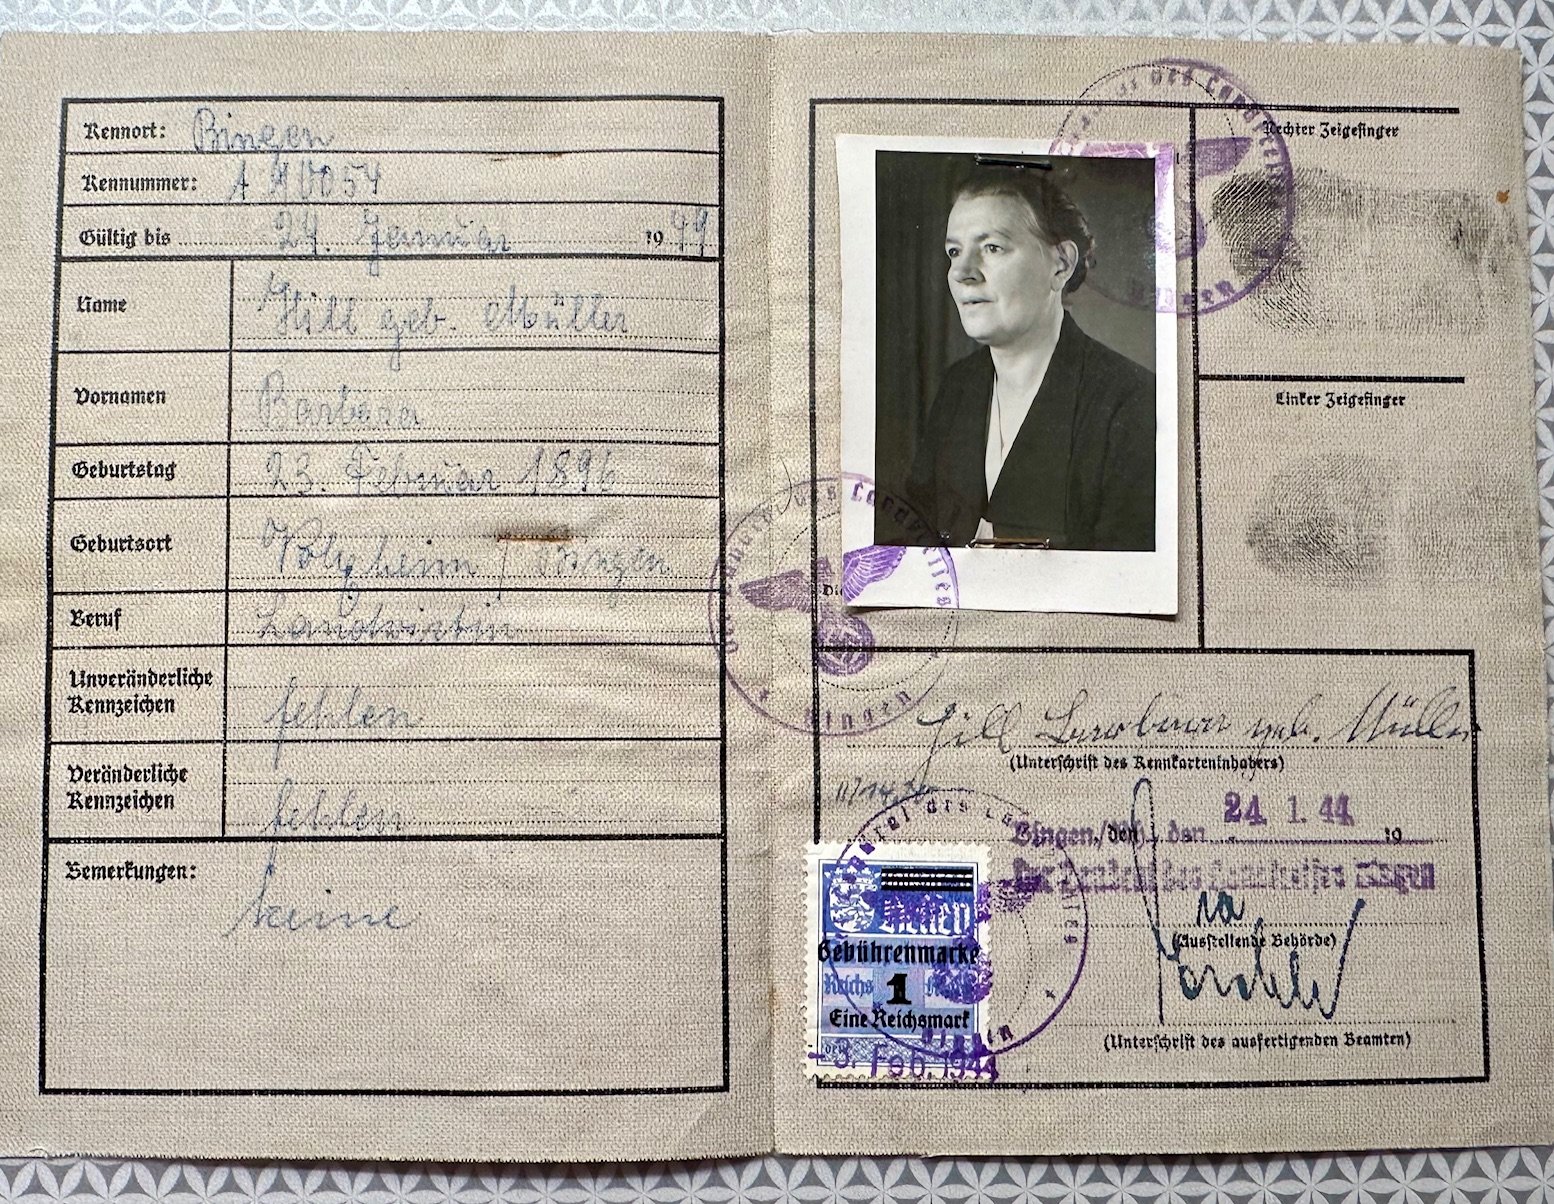 Kennort: Bingen
Kennummer: A 00054
Gültig bis 24. Januar 1949
Name Hill geb. Müller
Vornamen Barbara
Geburtstag 23. Februar 1896
Geburtsort Volxheim / Bingen
Beruf Landwirtin
Unveränderliche Kennzeichen fehlen
Veränderliche Kennzeichen fehlen
Bemerkungen: keine
Rechter Zeigefinger
Linker Zeigefinger
Der Landrat des Landkreises
Bingen
Hill Barbara geb. Müller
(Unterschrift des Kennkarteninhabers)
Bingen, den 24. 1. 44 19
Der Landrat des Landkreises Bingen
(Ausstellende Behörde)
(Unterschrift des ausfertigenden Beamten)
Hessen
Gebührenmarke
Reichs 1 Mark
Eine Reichsmark
-3. Feb. 1944